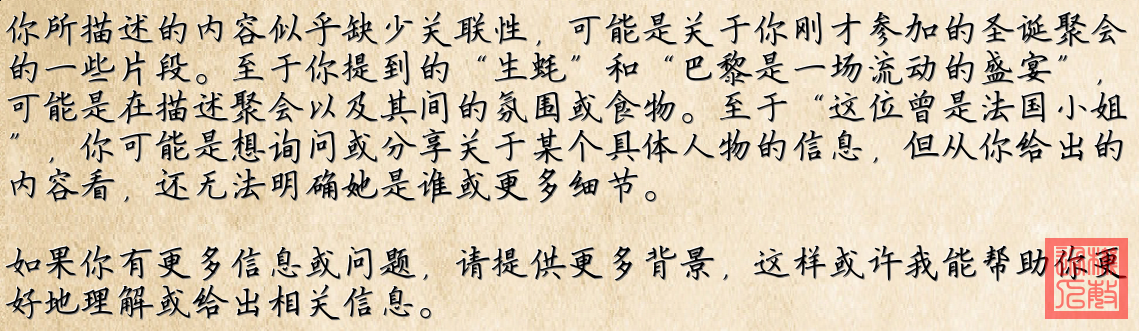 你所描述的内容似乎缺少关联性，可能是关于你刚才参加的圣诞聚会
的一些片段。至于你提到的“生蚝”和“巴黎是一场流动的盛宴”，
可能是在描述聚会以及其间的氛围或食物。至于“这位曾是法国小姐
”，你可能是想询问或分享关于某个具体人物的信息，但从你给出的
内容看，还无法明确她是谁或更多细节。
如果你有更多信息或问题，请提供更多背景，这样或许我能帮助你更
好地理解或给出相关信息。